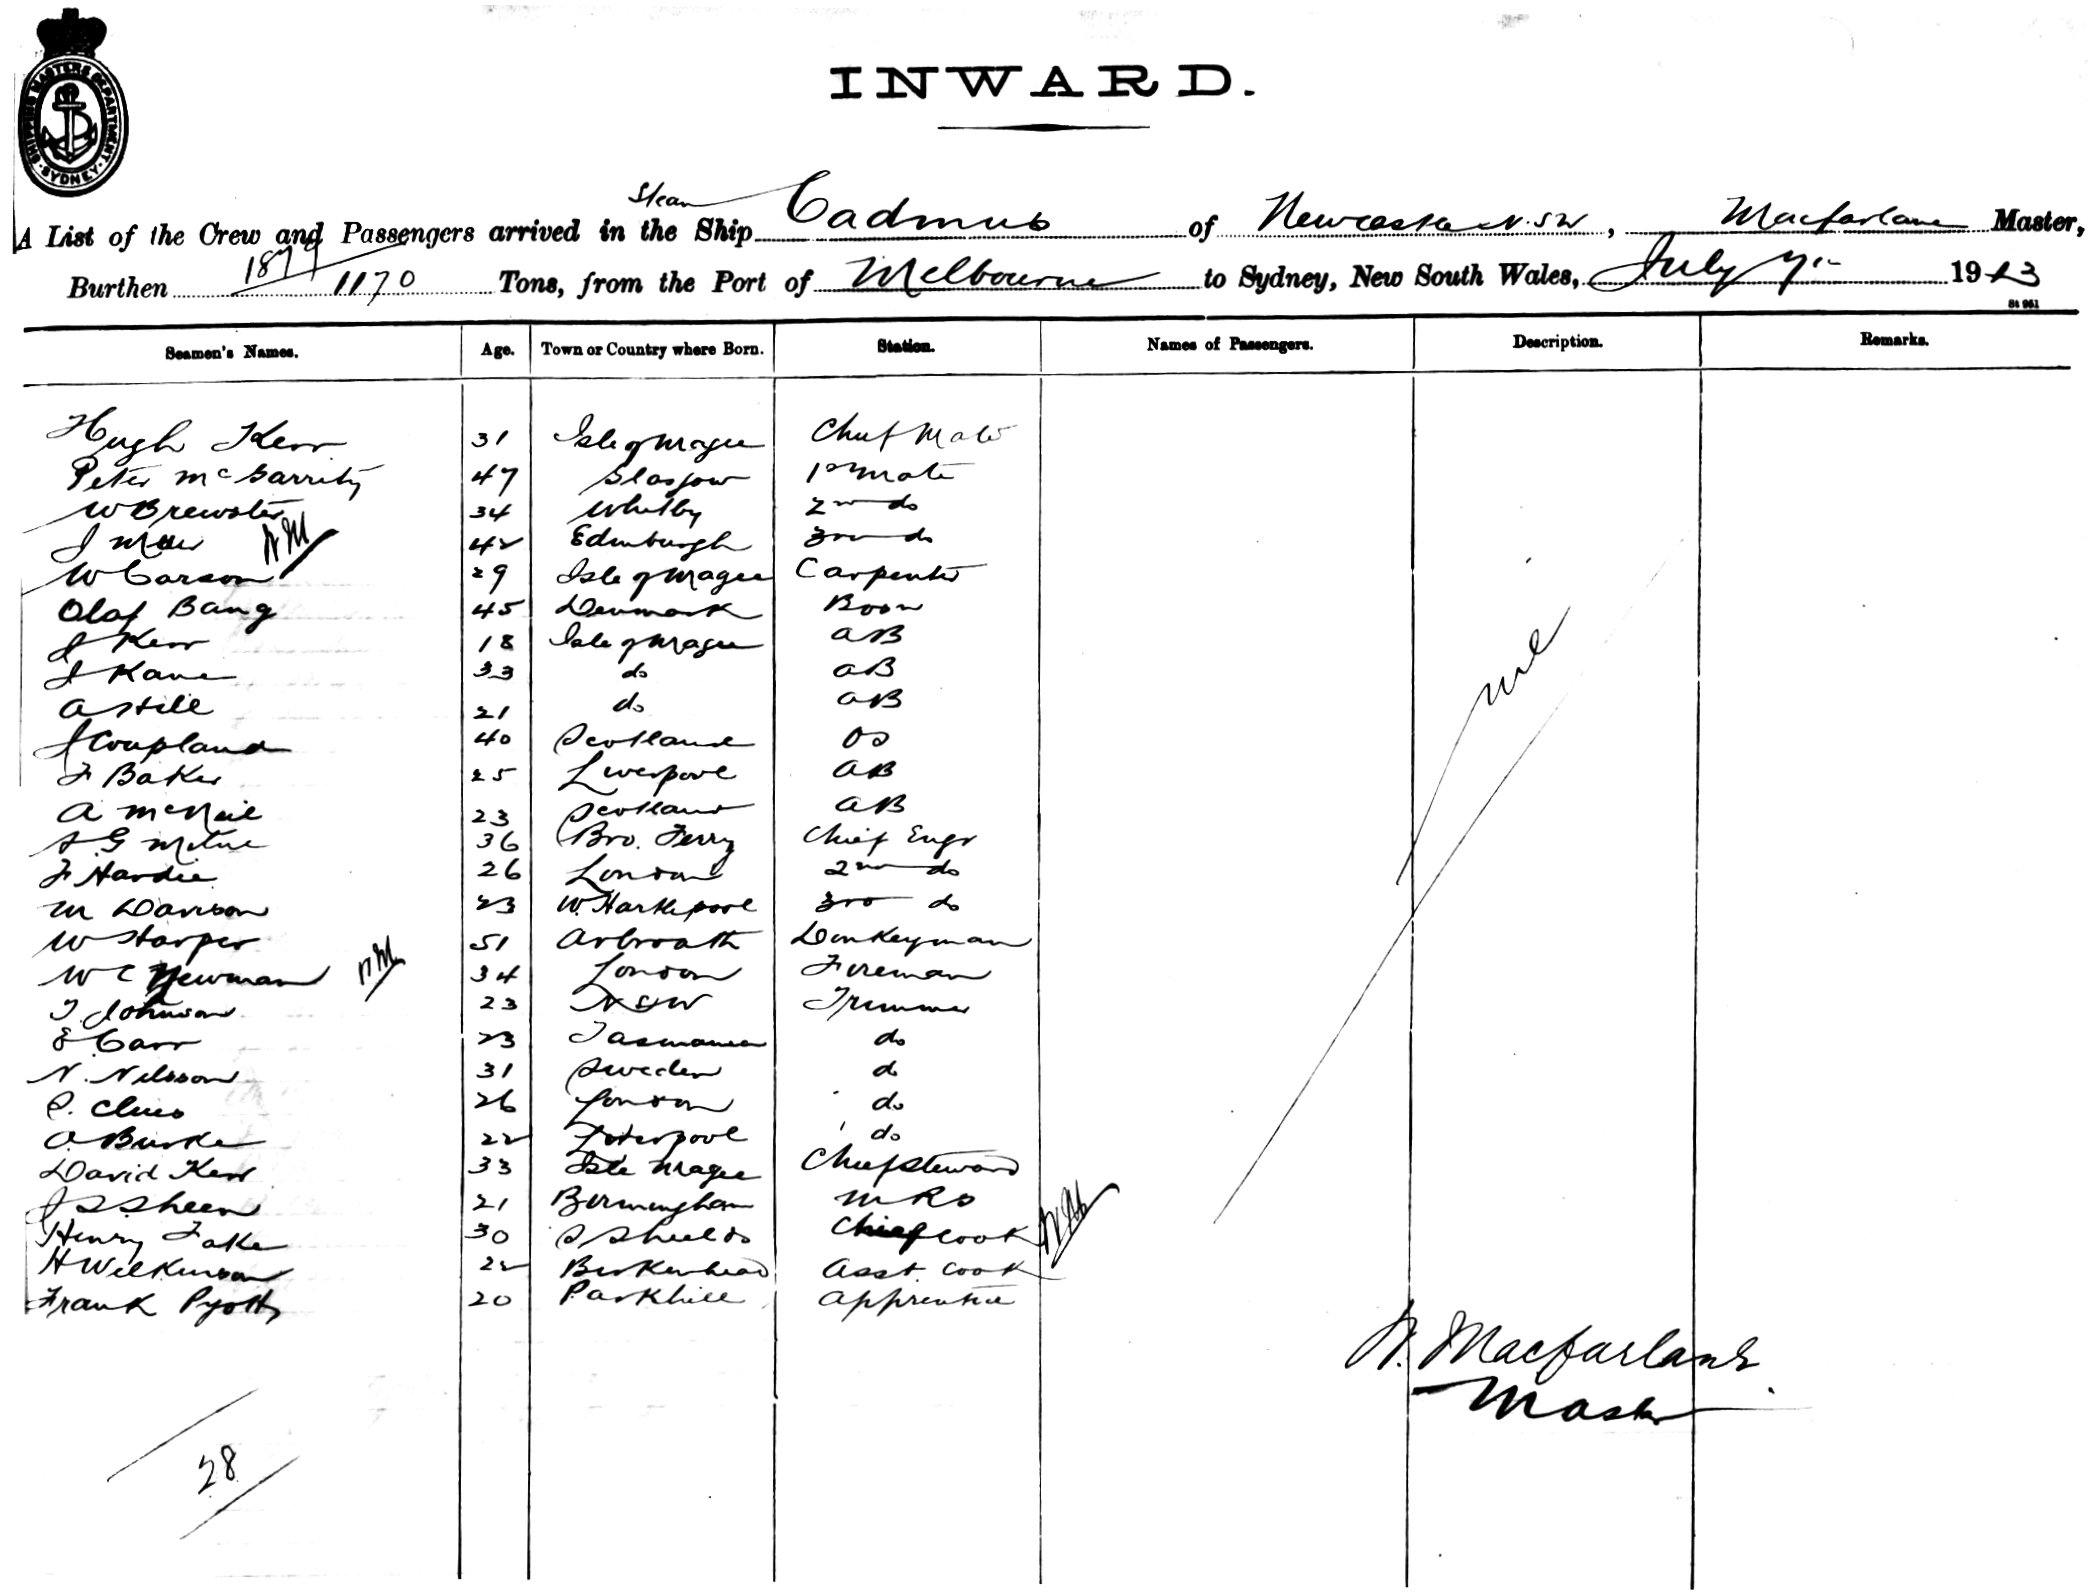 SHIPPING MASTERS DEPARTMENT · SYDNEY ·
INWARD.
Steam
A List of the Crew and Passengers arrived in the Ship Cadmus of Newcastle N.S.W, Macfarlane Master,
1877
Burthen 1170 Tons, from the Port of Melbourne to Sydney, New South Wales, July 7 1913
St 961
Seamen's Names. Age. Town or Country where Born. Station. Names of Passengers. Description. Remarks.
Hugh Kerr 31 Isle of Magee Chief Mate
Peter McGarrity 47 Glasgow 1st Mate
W Brewster 34 Whitby 2nd do
J 42 Edinburgh 3rd do
W Carson 29 Isle of Magee Carpenter
Olaf Bang 45 Denmark Bosn
J Kerr 18 Isle of Magee AB
J Kane 33 do AB
A Hill 21 do AB
J Coupland 40 Scotland OS
F Baker 25 Liverpool AB
A McNeil 23 Scotland AB
G Milne 36 Bro. Ferry Chief Engr
F Hardie 26 London 2nd do
M Davison 23 W. Hartlepool 3rd do
W Harper 51 Arbroath Donkeyman
W C Newman 34 London Fireman
T. Johnson 23 NSW Trimmer
E Carr 23 Tasmania do
N. Nilsson 31 Sweden do
26 London do
A Burke 22 Liverpool do
David Kerr 33 Isle Magee Chief Steward
J S Sheen 21 Birmingham
Henry Fake 30 S Shields Chief Cook
H Wilkinson 22 Birkenhead Asst. Cook
Frank Pyott 20 Parkhill Apprentice
nil
N. Macfarlane
Master
28